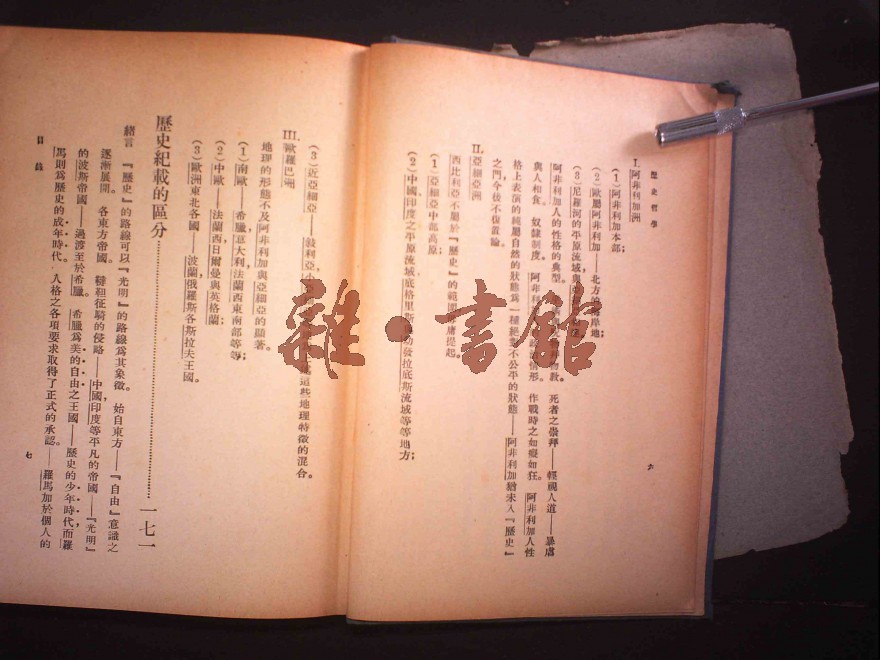 歷史哲學
I. 阿非利加洲
(1) 阿非利加本部;
(2) 歐屬阿非利加——北方的 岸地;
(3) 尼羅河的平原流域與
阿非利加人的性格的典型。 拜物教。 死者之崇拜——輕視人道——暴虐
與人相食。 奴隸制度。 阿非利 政治情形。 作戰時之如癡如狂。 阿非利加人性
格上表演的純屬自然的狀態爲一種絕 不公平的狀態——阿非利加猶未入『歷史』
之門,今後不復置論。
II. 亞細亞洲
西比利亞不屬於『歷史』的範 庸提起。
(1) 亞細亞中部高原;
(2) 中國印度之平原流域底格里斯 幼發拉底斯流域等等地方;
六
(3) 近亞細亞——敍利亞, 這些地理特徵的混合。
III. 歐羅巴洲
地理的形態不及阿非利加與亞細亞的顯著。
(1) 南歐——希臘意大利法蘭西東南部等等;
(2) 中歐——法蘭西日爾曼與英格蘭;
(3) 歐洲東北各國——波蘭俄羅斯各斯拉夫王國。
歷史紀載的區分…………一七一
緒言 『歷史』的路線可以『光明』的路線爲其象徵。 始自東方——『自由』意識之
逐漸展開。 各東方帝國 韃靼征騎的侵略——中國,印度等平凡的帝國——『光明』
的波斯帝國——過渡至於希臘。 希臘爲美的自由之王國——歷史的少年時代,而羅
馬則爲歷史的成年時代。 人格之各項要求取得了正式的承認。——羅馬加於個人的
目錄
七
雜·書館